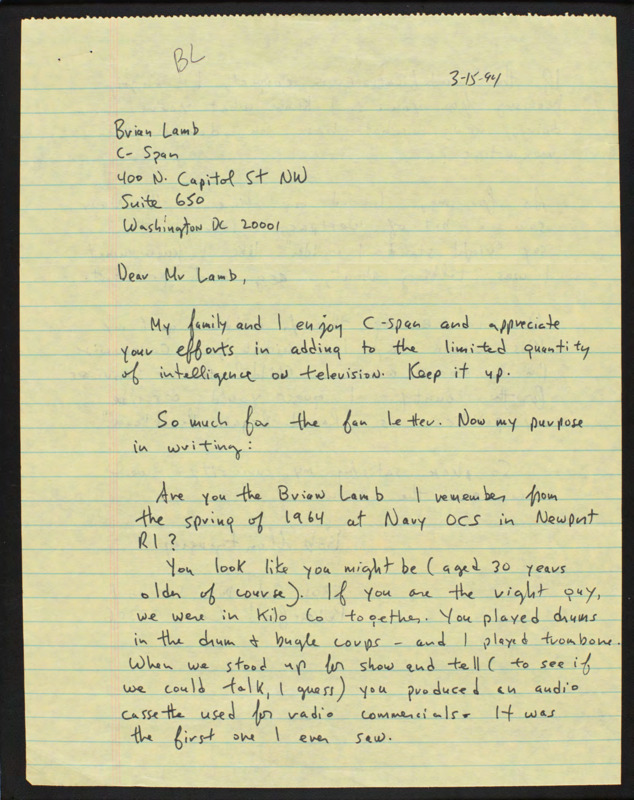 BL
3-15-94
Brian Lamb
C-Span
400 N. Capitol St NW
Suite 650
Washington DC 20001
Dear Mr Lamb,
My family and I enjoy C-span and appreciate
your efforts in adding to the limited quantity
of intelligence on television. Keep it up.
So much for the fan letter. Now my purpose
in writing:
Are you the Brian Lamb I remember from
the spring of 1964 at Navy OCS in Newport
RI?
You look like you might be (aged 30 years
older of course). If you are the right guy,
we were in Kilo Co together. You played drums
in the drum & bugle corps - and I played trombone.
When we stood up for show and tell (to see if
we could talk, I guess) you produced an audio
cassette used for radio commercials. It was
the first one I ever saw.